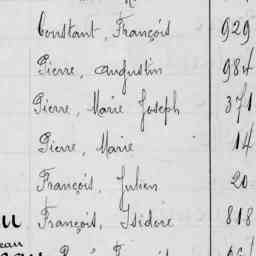 Constant, François 929
Pierre, Augustin 984
Pierre, Marie Joseph 371
Pierre, Marie 14
François, Julien 20
François, Isidore 818
eau